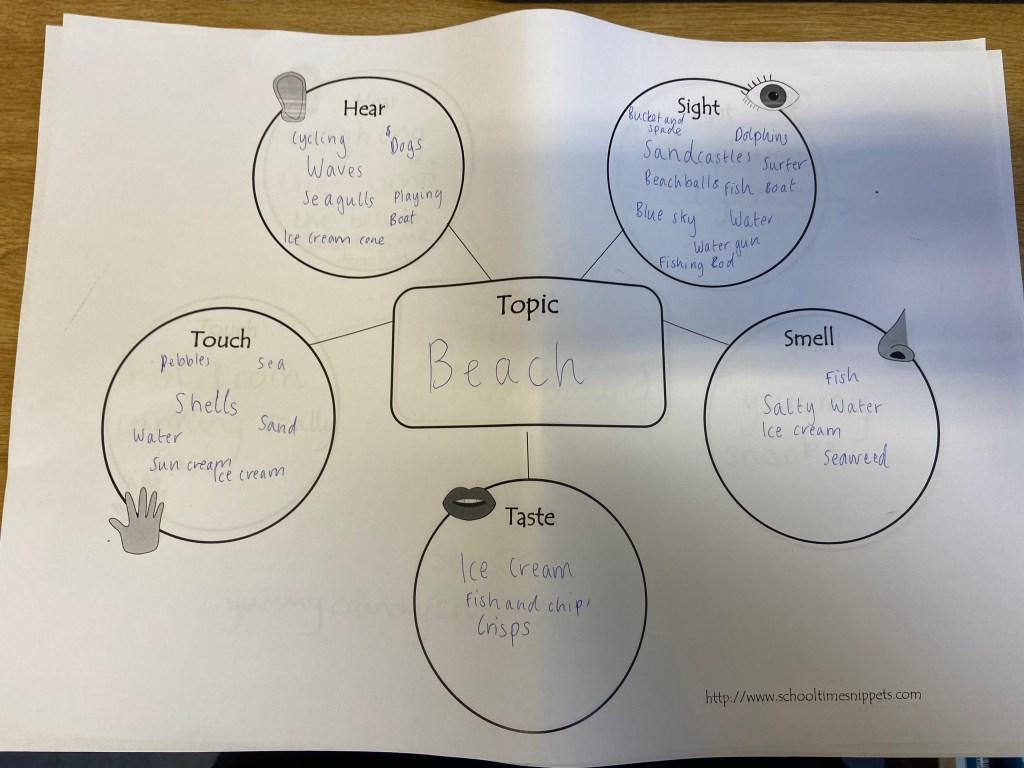 Hear
Cycling Dogs
Waves
Seagulls Playing
Boat
Ice cream cone
Sight
Bucket and
spade
Dolphins
Sandcastles Surfer
Beachballs fish Boat
Blue sky Water
Water gun
Fishing Rod
Topic
Beach
Touch
Pebbles Sea
Shells
Water Sand
Sun cream
Ice cream
Smell
Fish
Salty Water
Ice cream
Seaweed
Taste
Ice Cream
Fish and chip'
Crisps
http://www.schooltimesnippets.com